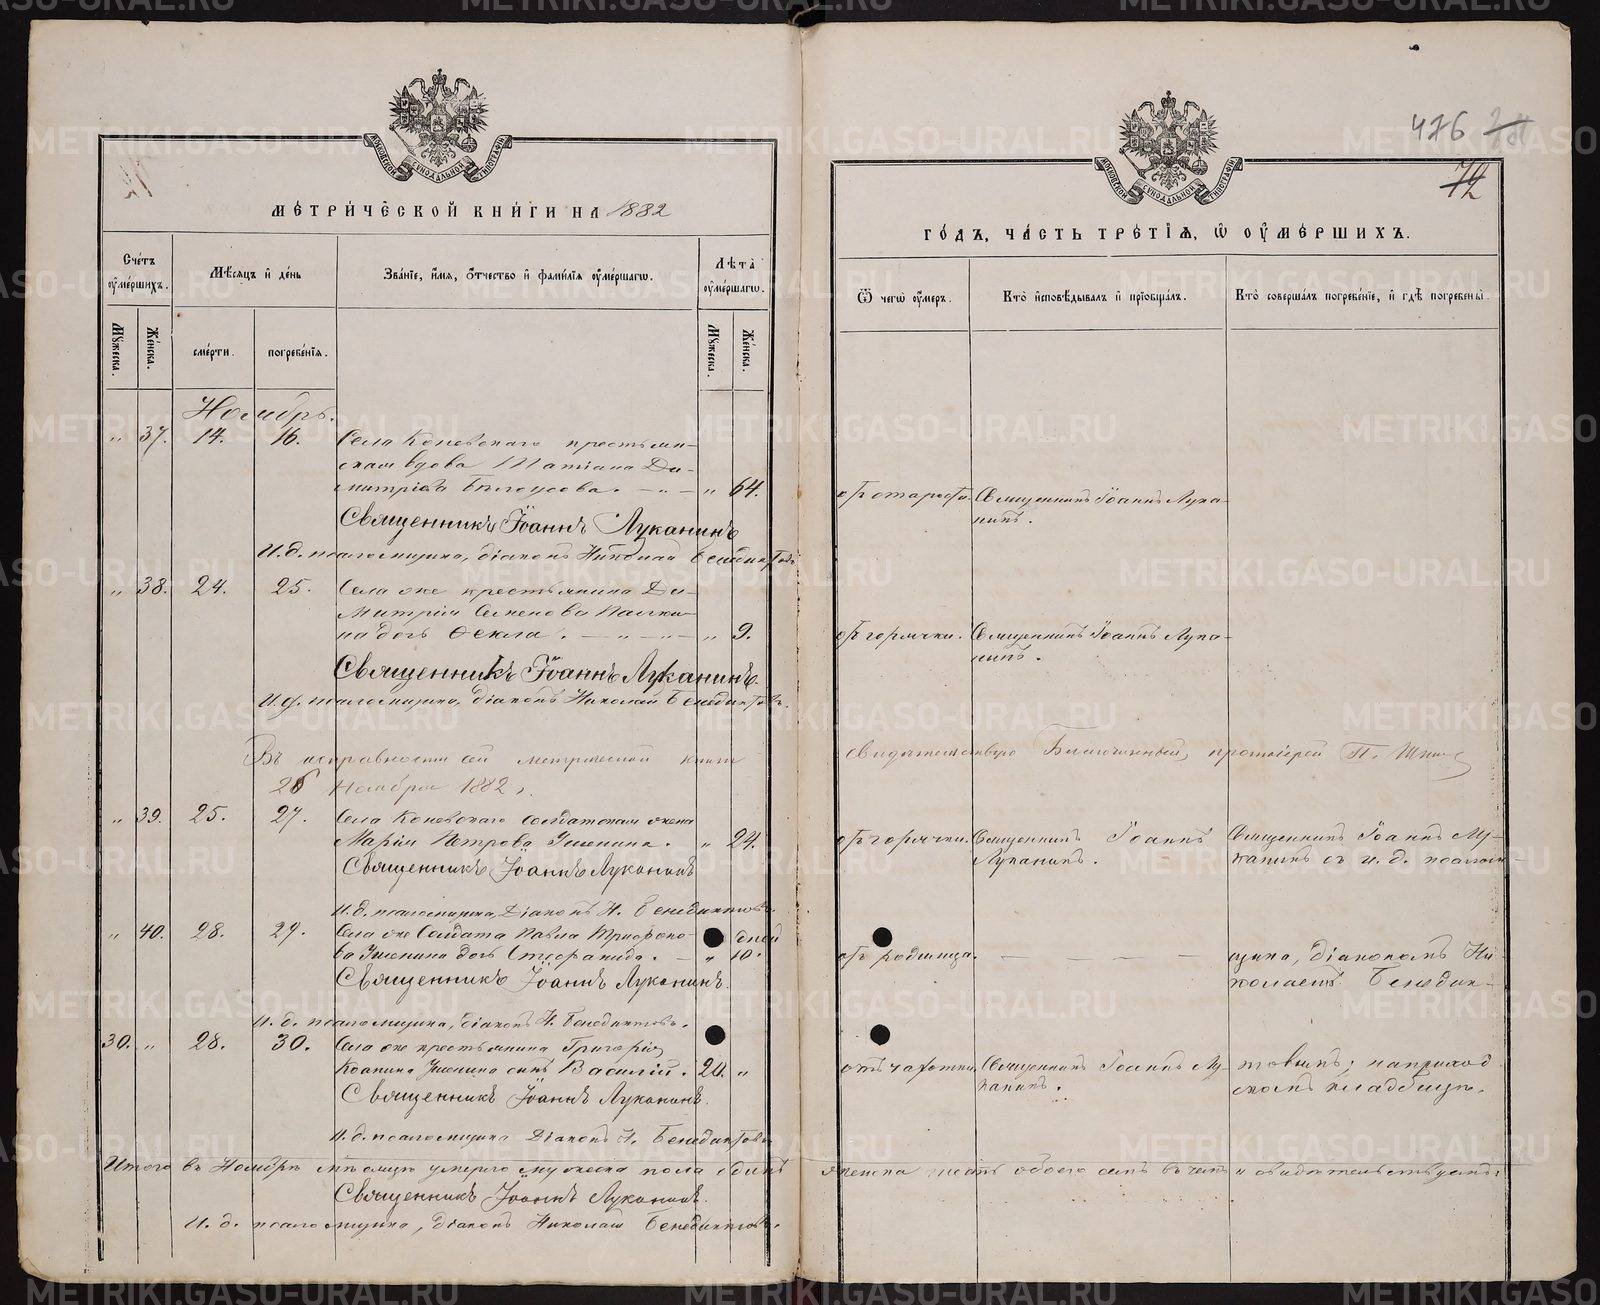 МЕТРИЧЕСКОЙ КНИГИ НА 1882
Счетъ умершихъ.
Мѣсяцъ и день
Званіе, имя, отчество и фамилія умершаго.
Лѣта умершаго.
Мужеска.
Женска.
смерти.
погребенія.
Мужеска.
Женска.
Ноябрь.
" 37. 14. 16. Села Коневскаго крестьян-
ская вдова Татіана Ди-
митріева Бѣлоусова. — " — " 64.
Священникъ Іоаннъ Луканинъ
И. д. псаломщика, діаконъ Николай Бенедиктовъ
" 38. 24. 25. Села оже крестьянина Ди-
митрія Семенова
на дочь Ѳекла. — " — " — " 9.
Священникъ Іоаннъ Луканинъ.
И. д. псаломщика, діаконъ Николай Бенедиктовъ.
Въ исправности сей метрической книги
26 Ноября 1882 г.
" 39. 25. 27. Села Коневскаго солдатская жена
Марія Петрова Ушенина. " 24.
Священникъ Іоаннъ Луканинъ
И. д. псаломщика, Діаконъ Н. Бенедиктовъ.
" 40. 28. 29. Села оже Солдата Павла Трифоно- дней
ва Ушенина дочь Стефанида. — " 10.
Священникъ Іоаннъ Луканинъ.
И. д. псаломщика, діаконъ Н. Бенедиктовъ.
30. " 28. 30. Села оже крестьянина Григорія
Ушенина сынъ Василій. 20. "
Священникъ Іоаннъ Луканинъ.
И. д. псаломщика Діаконъ Н. Бенедиктовъ
Итого въ Ноябрѣ мѣсяцѣ умерло мужеска пола одинъ
Священникъ Іоаннъ Луканинъ.
И. д. псаломщика, діаконъ Николай Бенедиктовъ.
476
72
ГОДЪ, ЧАСТЬ ТРЕТІЯ, Ѿ УМЕРШИХЪ.
Ѿ чего умеръ.
Кто исповѣдывалъ и пріобщалъ.
Кто совершалъ погребеніе, и гдѣ погребены.
отъ старости. Священникъ Іоаннъ Лука-
нинъ.
отъ горячки. Священникъ Іоаннъ Лука-
нинъ.
свидѣтельствую Благочинный, протоіерей П.
отъ горячки. Священникъ Іоаннъ Священникъ Іоаннъ Лу-
Луканинъ. канинъ съ и. д. псалом-
отъ родимца. — — — — щика, діакономъ Ни-
колаемъ Бенедик-
отъ чахотки. Священникъ Іоаннъ Лу- товымъ; на приход
канинъ. скомъ кладбищѣ.
женска шесть обоего семь въ чемъ и свидѣтельствуемъ:
METRIKI.GASO-URAL.RU